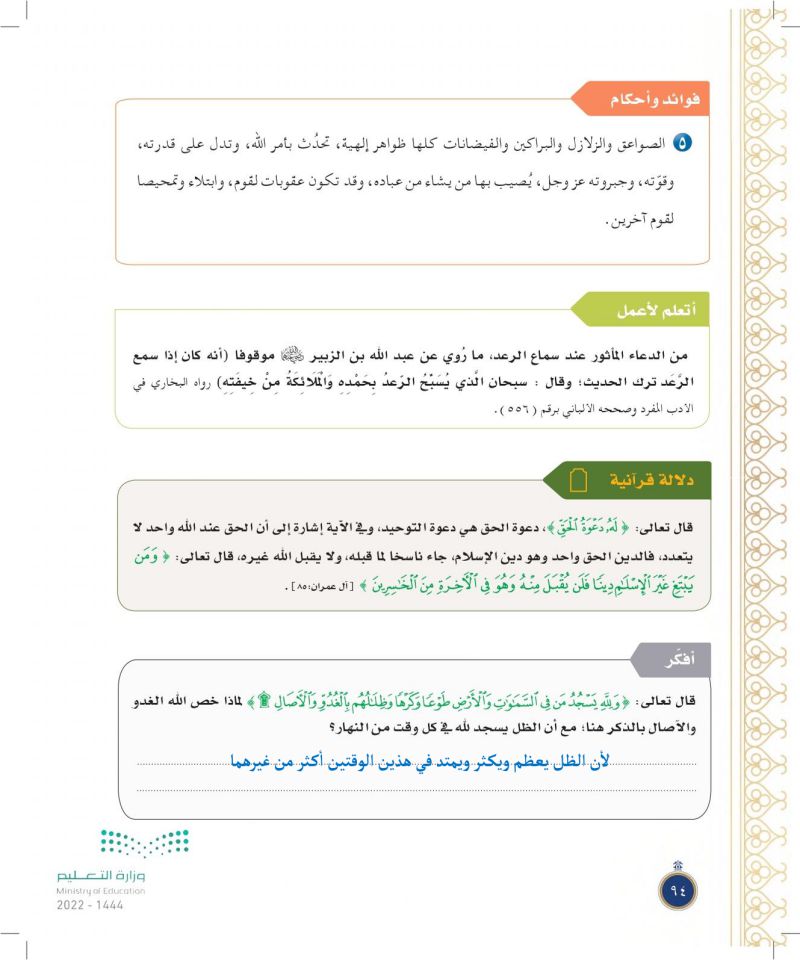 فوائد وأحكام
٥ الصواعق والزلازل والبراكين والفيضانات كلها ظواهر إلهية، تحدُث بأمر الله، وتدل على قدرته،
وقوّته، وجبروته عز وجل، يُصيب بها من يشاء من عباده، وقد تكون عقوبات لقوم، وابتلاء وتمحيصا
لقوم آخرين.
أتعلم لأعمل
من الدعاء المأثور عند سماع الرعد، ما رُوي عن عبد الله بن الزبير موقوفا (أنه كان إذا سمع
الرَّعَد ترك الحديث؛ وقال : سبحان الَّذي يُسَبِّحُ الرّعدُ بِحَمْدِهِ وَالْمَلَائِكَةُ مِنْ خِيفَتِهِ) رواه البخاري في
الادب المفرد وصححه الالباني برقم (٥٥٦).
دلالة قرآنية
قال تعالى: ﴿ لَهُۥ دَعْوَةُ ٱلْحَقِّ ﴾، دعوة الحق هي دعوة التوحيد، وفي الآية إشارة إلى أن الحق عند الله واحد لا
يتعدد، فالدين الحق واحد وهو دين الإسلام، جاء ناسخا لما قبله، ولا يقبل الله غيره، قال تعالى: ﴿ وَمَن
يَبْتَغِ غَيْرَ ٱلْإِسْلَٰمِ دِينًا فَلَن يُقْبَلَ مِنْهُ وَهُوَ فِي ٱلْأَخِرَةِ مِنَ ٱلْخَٰسِرِينَ ﴾ [آل عمران:٨٥].
أفكّر
قال تعالى: ﴿وَلِلَّهِ يَسْجُدُ مَن فِي ٱلسَّمَٰوَٰتِ وَٱلْأَرْضِ طَوْعًا وَكَرْهًا وَظِلَٰلُهُم بِٱلْغُدُوِّ وَٱلْأَصَالِ ۩﴾ لماذا خص الله الغدو
والآصال بالذكر هنا؛ مع أن الظل يسجد لله في كل وقت من النهار؟
لأن الظل يعظم ويكثر ويمتد في هذين الوقتين أكثر من غيرهما
وزارة التعليم
Ministry of Education
2022 - 1444
٩٤